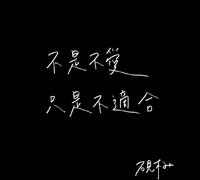 不是不愛
只是不適合